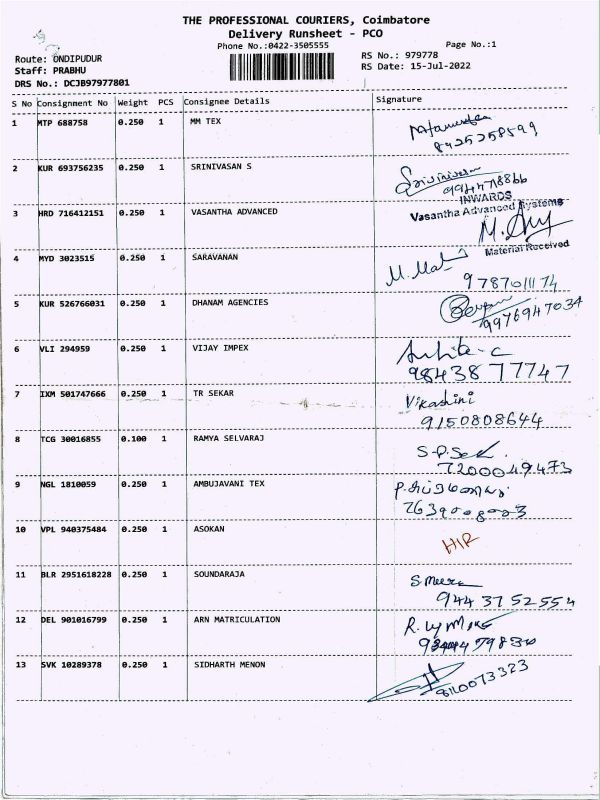 THE PROFESSIONAL COURIERS, Coimbatore
Delivery Runsheet - PCO
Phone No.:0422-3505555
Page No.:1
Route: ONDIPUDUR
RS No.: 979778
Staff: PRABHU
RS Date: 15-Jul-2022
DRS No.: DCJB97977801
S No Consignment No Weight PCS Consignee Details Signature
1 MTP 688758 0.250 1 MM TEX
8425258599
2 KUR 693756235 0.250 1 SRINIVASAN S
Srinivasan
INWARDS
3 HRD 716412151 0.250 1 VASANTHA ADVANCED
Vasantha Advanced Systems
Material Received
4 MYD 3023515 0.250 1 SARAVANAN
9787011174
5 KUR 526766031 0.250 1 DHANAM AGENCIES
9976947034
6 VLI 294959 0.250 1 VIJAY IMPEX
9843877747
7 IXM 501747666 0.250 1 TR SEKAR
Vikashini
9150808644
8 TCG 30016855 0.100 1 RAMYA SELVARAJ
7200049473
9 NGL 1810059 0.250 1 AMBUJAVANI TEX
10 VPL 940375484 0.250 1 ASOKAN
11 BLR 2951618228 0.250 1 SOUNDARAJA
S Meera
9443752554
12 DEL 901016799 0.250 1 ARN MATRICULATION
13 SVK 10289378 0.250 1 SIDHARTH MENON
8110073323